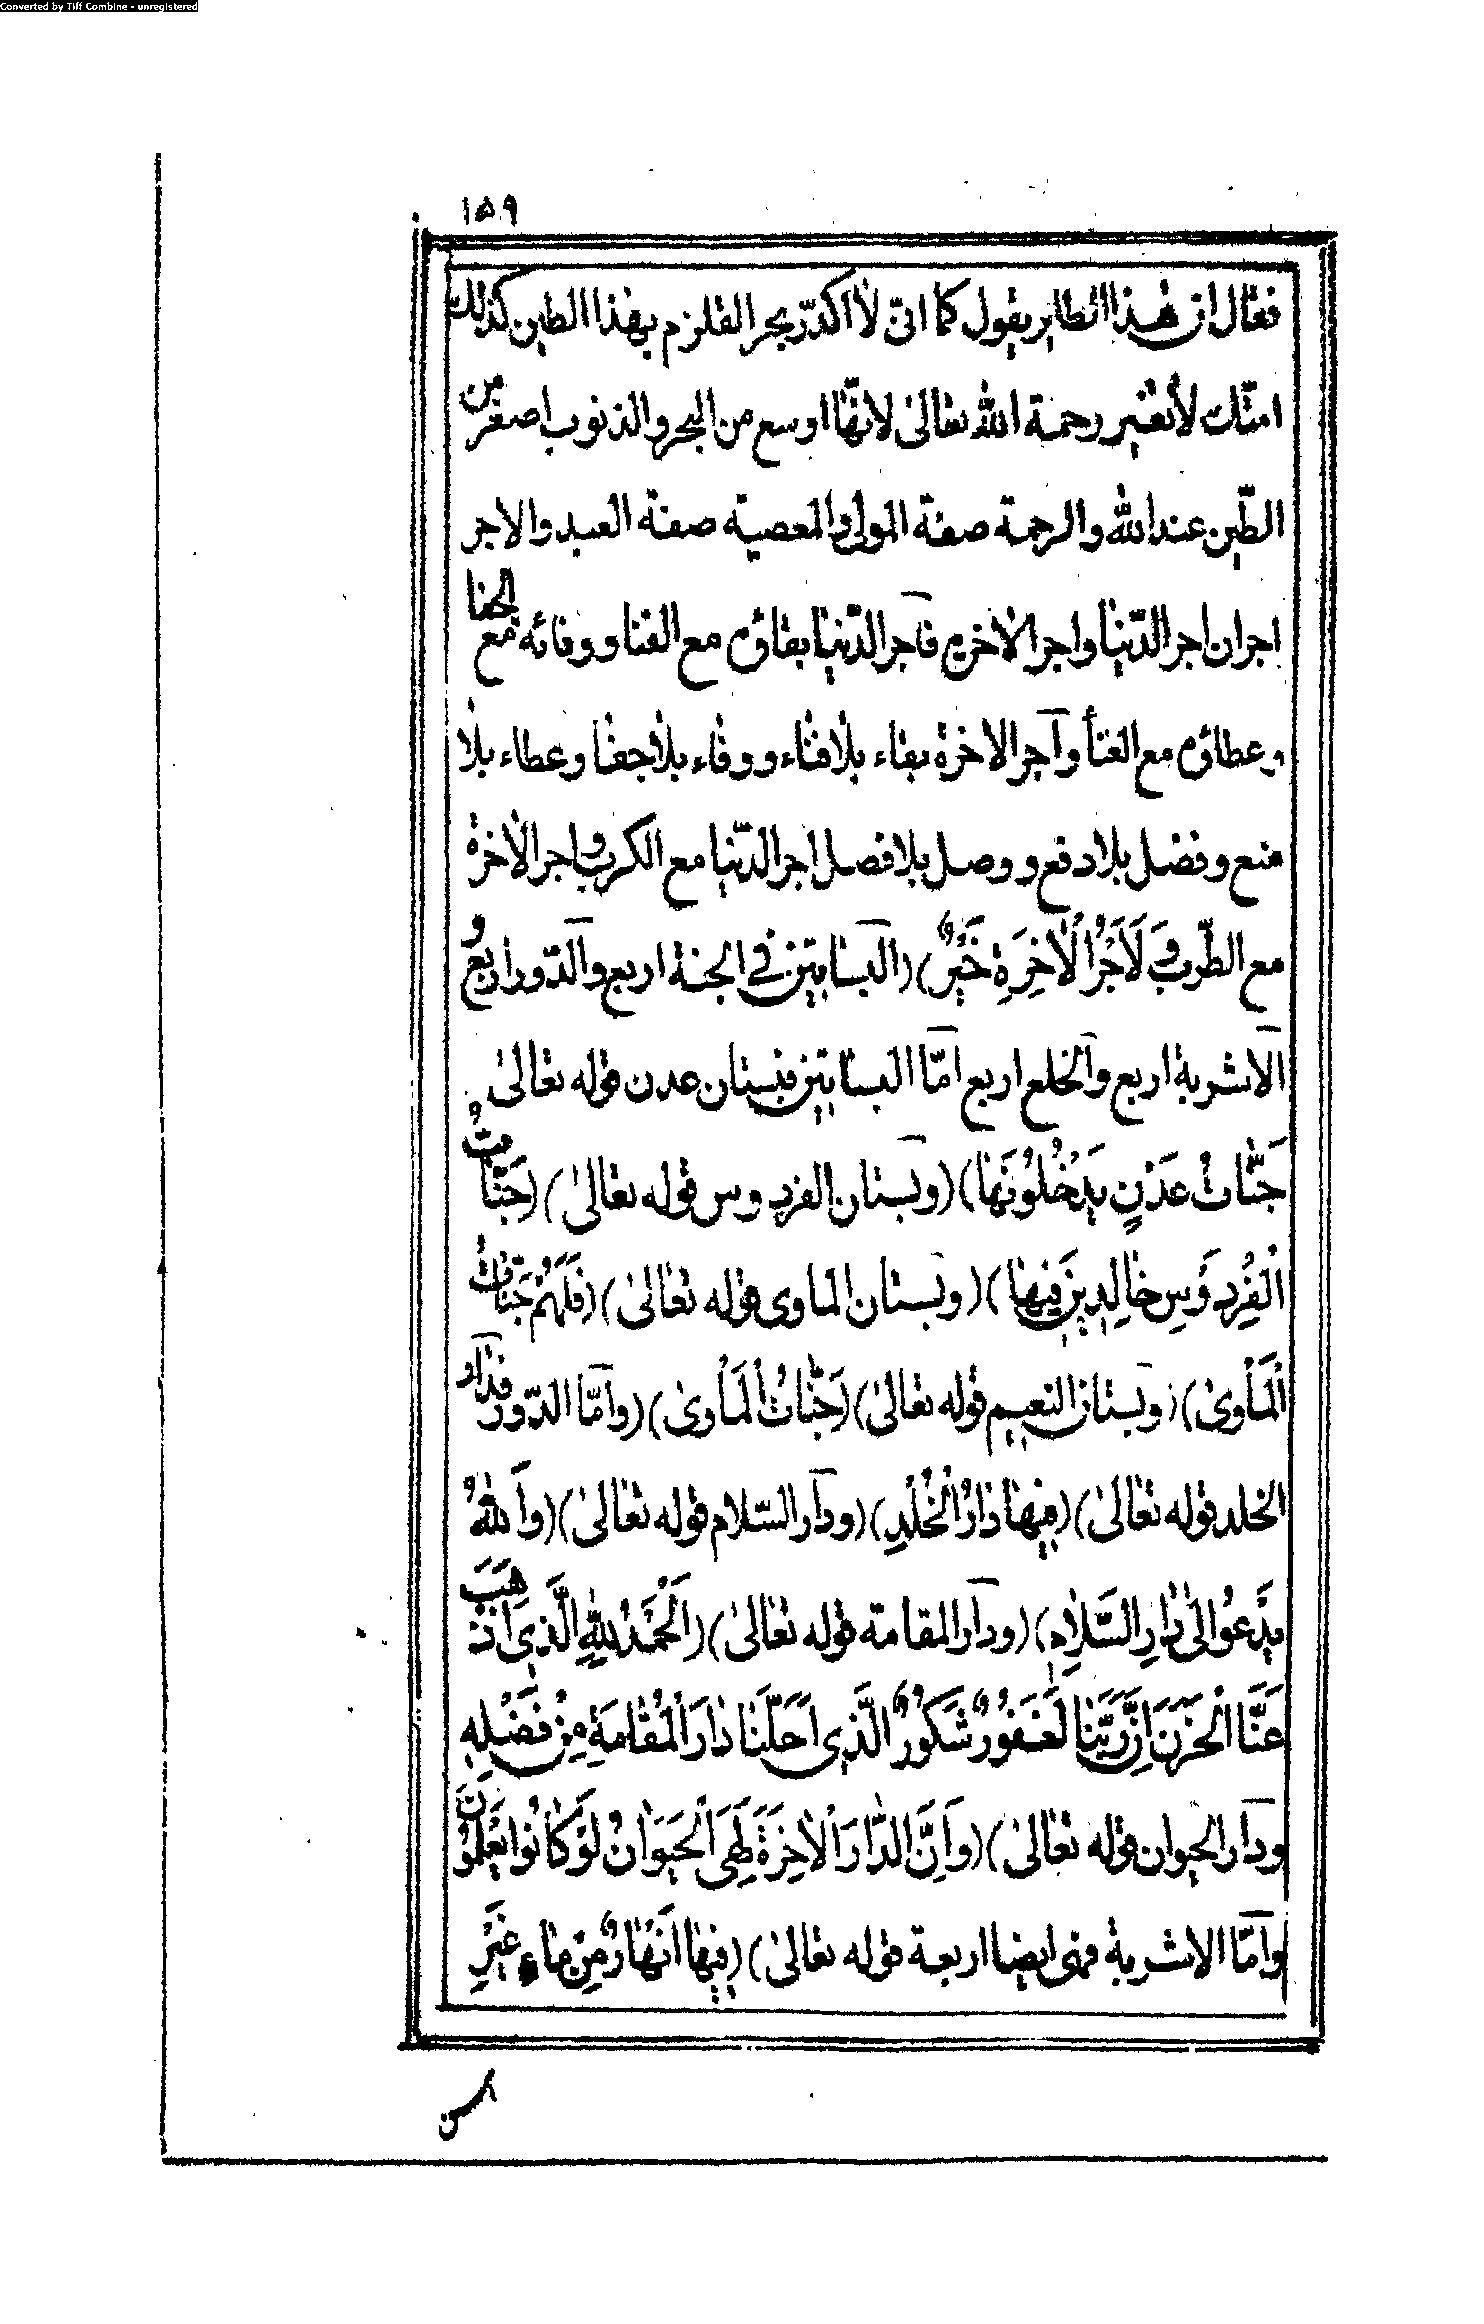 Converted by Tiff Combine - unregistered
١٥٩
فقال ان هذا الطاير يقول كما انى لا اكدّر بحر القلزم بهذا الطين كذلك
امتك لا تغير رحمة الله تعالى لانها اوسع من البحر والذنوب اصغر من
الطّين عند الله والرحمة صفة المولى والمعصية صفة العبد والاجر
اجران اجر الدّنيا واجر الاخرة فاجر الدّنيا بقاؤه مع الفنا ووفائه مع الجفا
وعطاؤه مع العنا واجر الاخرة بقاء بلا فناء ووفاء بلا جفا وعطاء بلا
منع وفضل بلا دفع ووصل بلا فصل اجر الدّنيا مع الكرب واجر الاخرة
مع الطّرب وَلَاَجْرُ الْاٰخِرَةِ خَيْرٌ) (البساتين فى الجنة اربع والدّور اربع و
الاشربة اربع والخلع اربع امّا البساتين فبستان عدن قوله تعالى
جَنّاتُ عَدْنٍ يَدْخُلُونَها) (وبستان الفردوس قوله تعالى) (جَنّاتُ
الْفِرْدَوْسِ خالِدِينَ فِيها) (وبستان الماوى قوله تعالى) (فَلَهُمْ جَنّاتُ
الْمَأْوى) (وبستان النعيم قوله تعالى) (جَنّاتُ الْمَأْوى) (وامّا الدّور فدار
الخلد قوله تعالى) (فِيها دارُ الْخُلْدِ) (ودار السّلام قوله تعالى) (وَاللّهُ
يَدْعُوا اِلى دارِ السَّلامِ) (ودار المقامة قوله تعالى) (اَلْحَمْدُ لِلّهِ الَّذِى اَذْهَبَ
عَنَّا الْحَزَنَ اِنَّ رَبَّنا لَغَفُورٌ شَكُورٌ الَّذِى اَحَلَّنا دارَ الْمُقامَةِ مِنْ فَضْلِهِ
ودار الحيوان قوله تعالى) (وَاِنَّ الدّارَ الْاٰخِرَةَ لَهِىَ الْحَيَوانُ لَوْ كانُوا يَعْلَمُونَ
وامّا الاشربة فهى ايضا اربعة قوله تعالى) (فِيها اَنْهارٌ مِنْ ماءٍ غَيْرِ